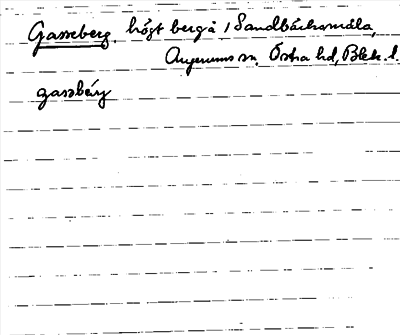 Gasseberg, högt berg å / Sandbäcksmåla,
Augerums sn, Östra hd, Blek. l.
gassbérj